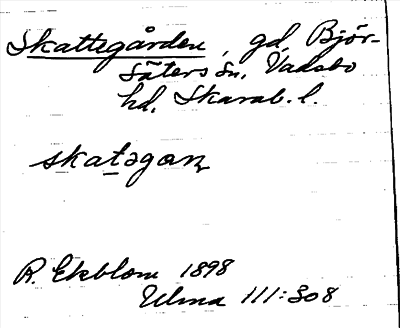 Skattegården, gd, Björ-
säters sn, Vadsbo
hd, Skarab. l.
skatəgaɳ
R. Ekblom 1898
Ulma 111:308